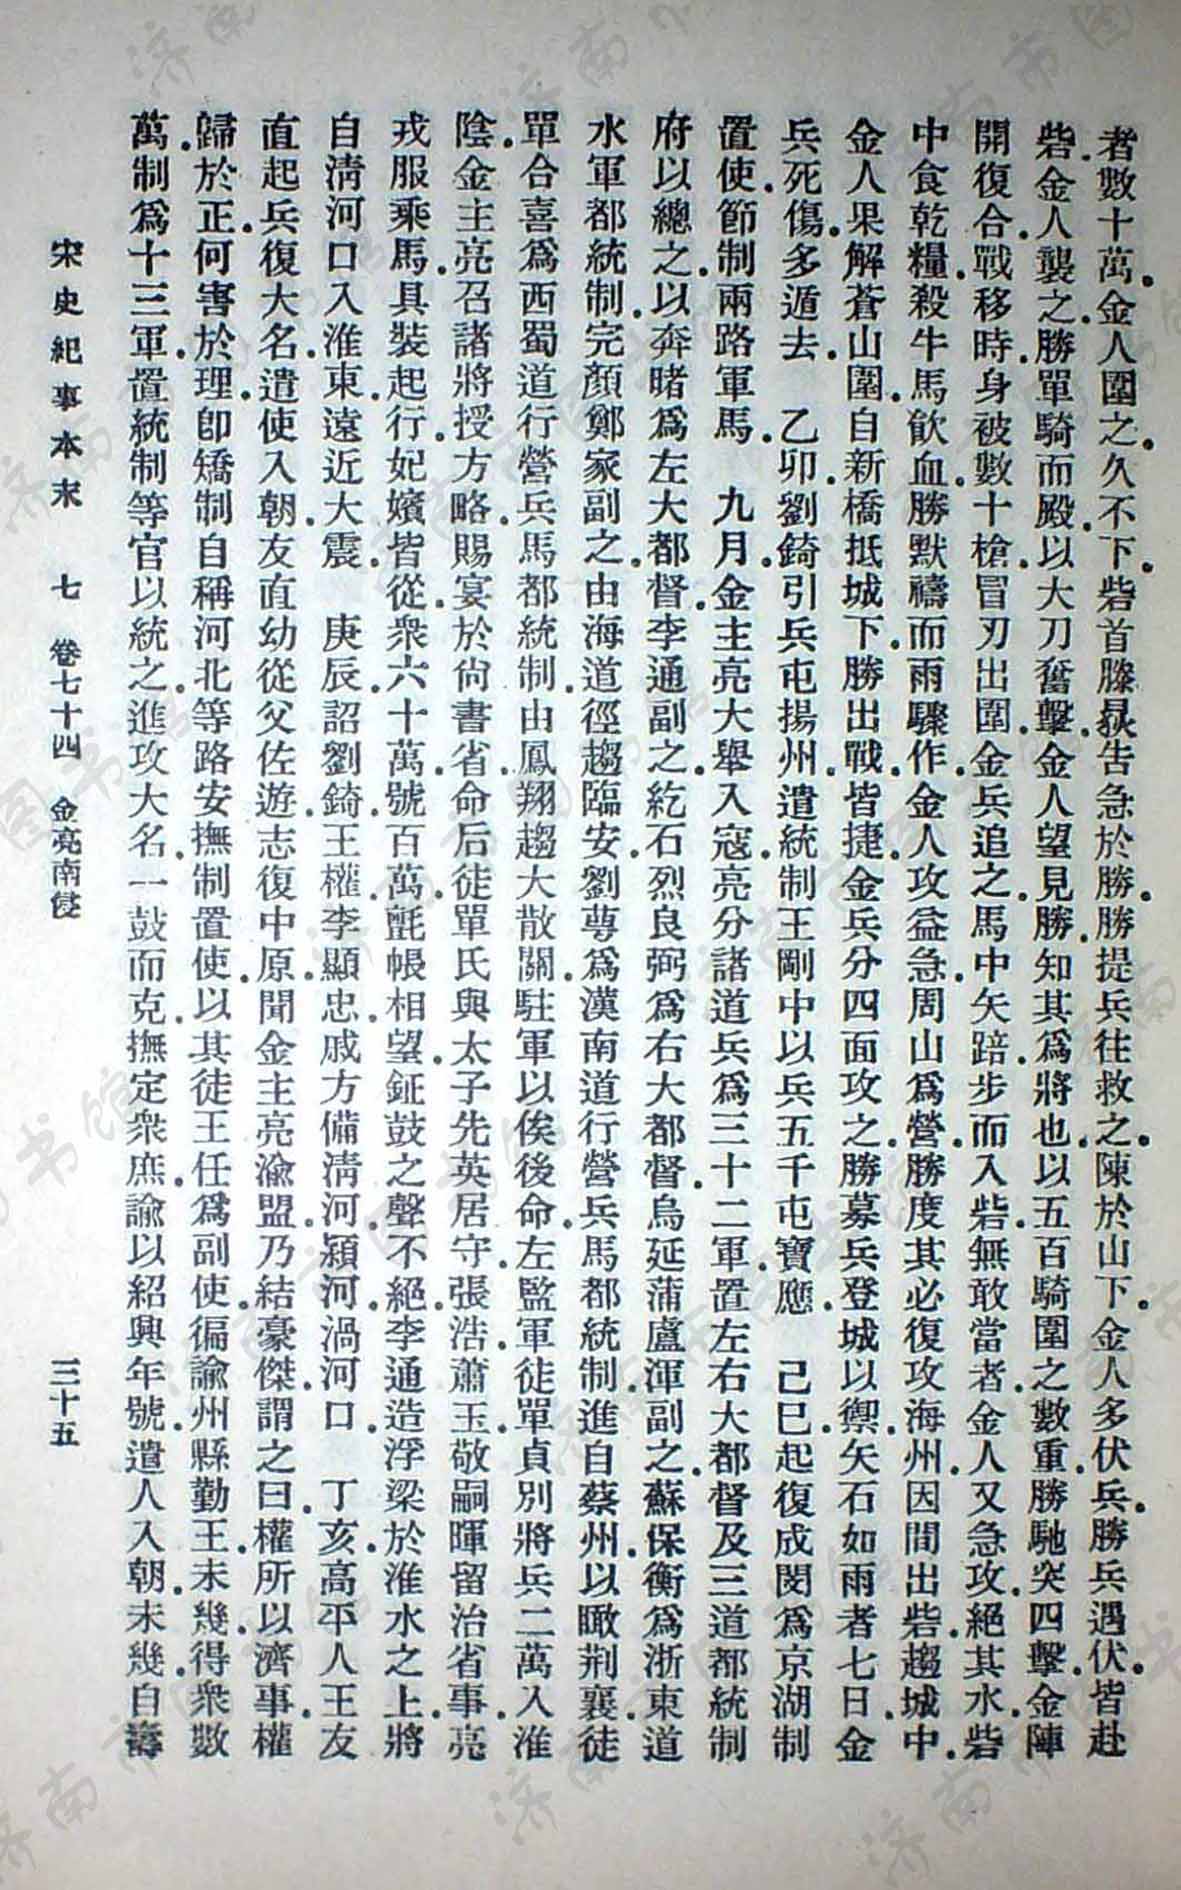 者數十萬．金人圍之．久不下．砦首滕㬎告急於勝．勝提兵往救之．陳於山下．金人多伏兵．勝兵遇伏．皆赴
砦．金人襲之．勝單騎而殿．以大刀奮擊．金人望見勝．知其爲將也．以五百騎圍之數重．勝馳突四擊．金陣
開復合．戰移時．身被數十槍．冒刃出圍．金兵追之．馬中矢踣．步而入砦．無敢當者．金人又急攻．絕其水．砦
中食乾糧．殺牛馬飮血．勝默禱．而雨驟作．金人攻益急．周山爲營．勝度其必復攻海州．因間出砦．趨城中．
金人果解蒼山圍．自新橋抵城下．勝出戰．皆捷．金兵分四面攻之．勝募兵登城以禦．矢石如雨者七日．金
兵死傷多遁去　乙卯．劉錡引兵屯揚州．遣統制王剛中以兵五千屯寶應　己巳．起復成閔爲京湖制
置使．節制兩路軍馬　九月．金主亮大舉入寇．亮分諸道兵爲三十二軍．置左右大都督及三道都統制
府以總之．以奔睹爲左大都督．李通副之．紇石烈良弼爲右大都督．烏延蒲盧渾副之．蘇保衡爲浙東道
水軍都統制．完顏鄭家副之．由海道徑趨臨安．劉萼爲漢南道行營兵馬都統制．進自蔡州．以瞰荆襄．徒
單合喜爲西蜀道行營兵馬都統制．由鳳翔趨大散關．駐軍以俟後命．左監軍徒單貞別將兵二萬入淮
陰．金主亮召諸將授方略．賜宴於尙書省．命后徒單氏與太子先英居守．張浩．蕭玉．敬嗣暉留治省事．亮
戎服乘馬．具裝起行．妃嬪皆從．衆六十萬．號百萬．氈帳相望．鉦鼓之聲不絕．李通造浮梁於淮水之上．將
自淸河口入淮東．遠近大震　庚辰．詔劉錡．王權．李顯忠．戚方備淸河．潁河．渦河口　丁亥．高平人王友
直起兵復大名．遣使入朝．友直幼從父佐遊．志復中原．聞金主亮渝盟．乃結豪傑．謂之曰．權所以濟事．權
歸於正．何害於理．卽矯制自稱河北等路安撫制置使．以其徒王任爲副使．徧諭州縣勤王．未幾．得衆數
萬．制爲十三軍．置統制等官以統之．進攻大名．一鼓而克．撫定衆庶．諭以紹興年號．遣人入朝．未幾．自壽
宋史紀事本末　七　卷七十四　金亮南侵　三十五